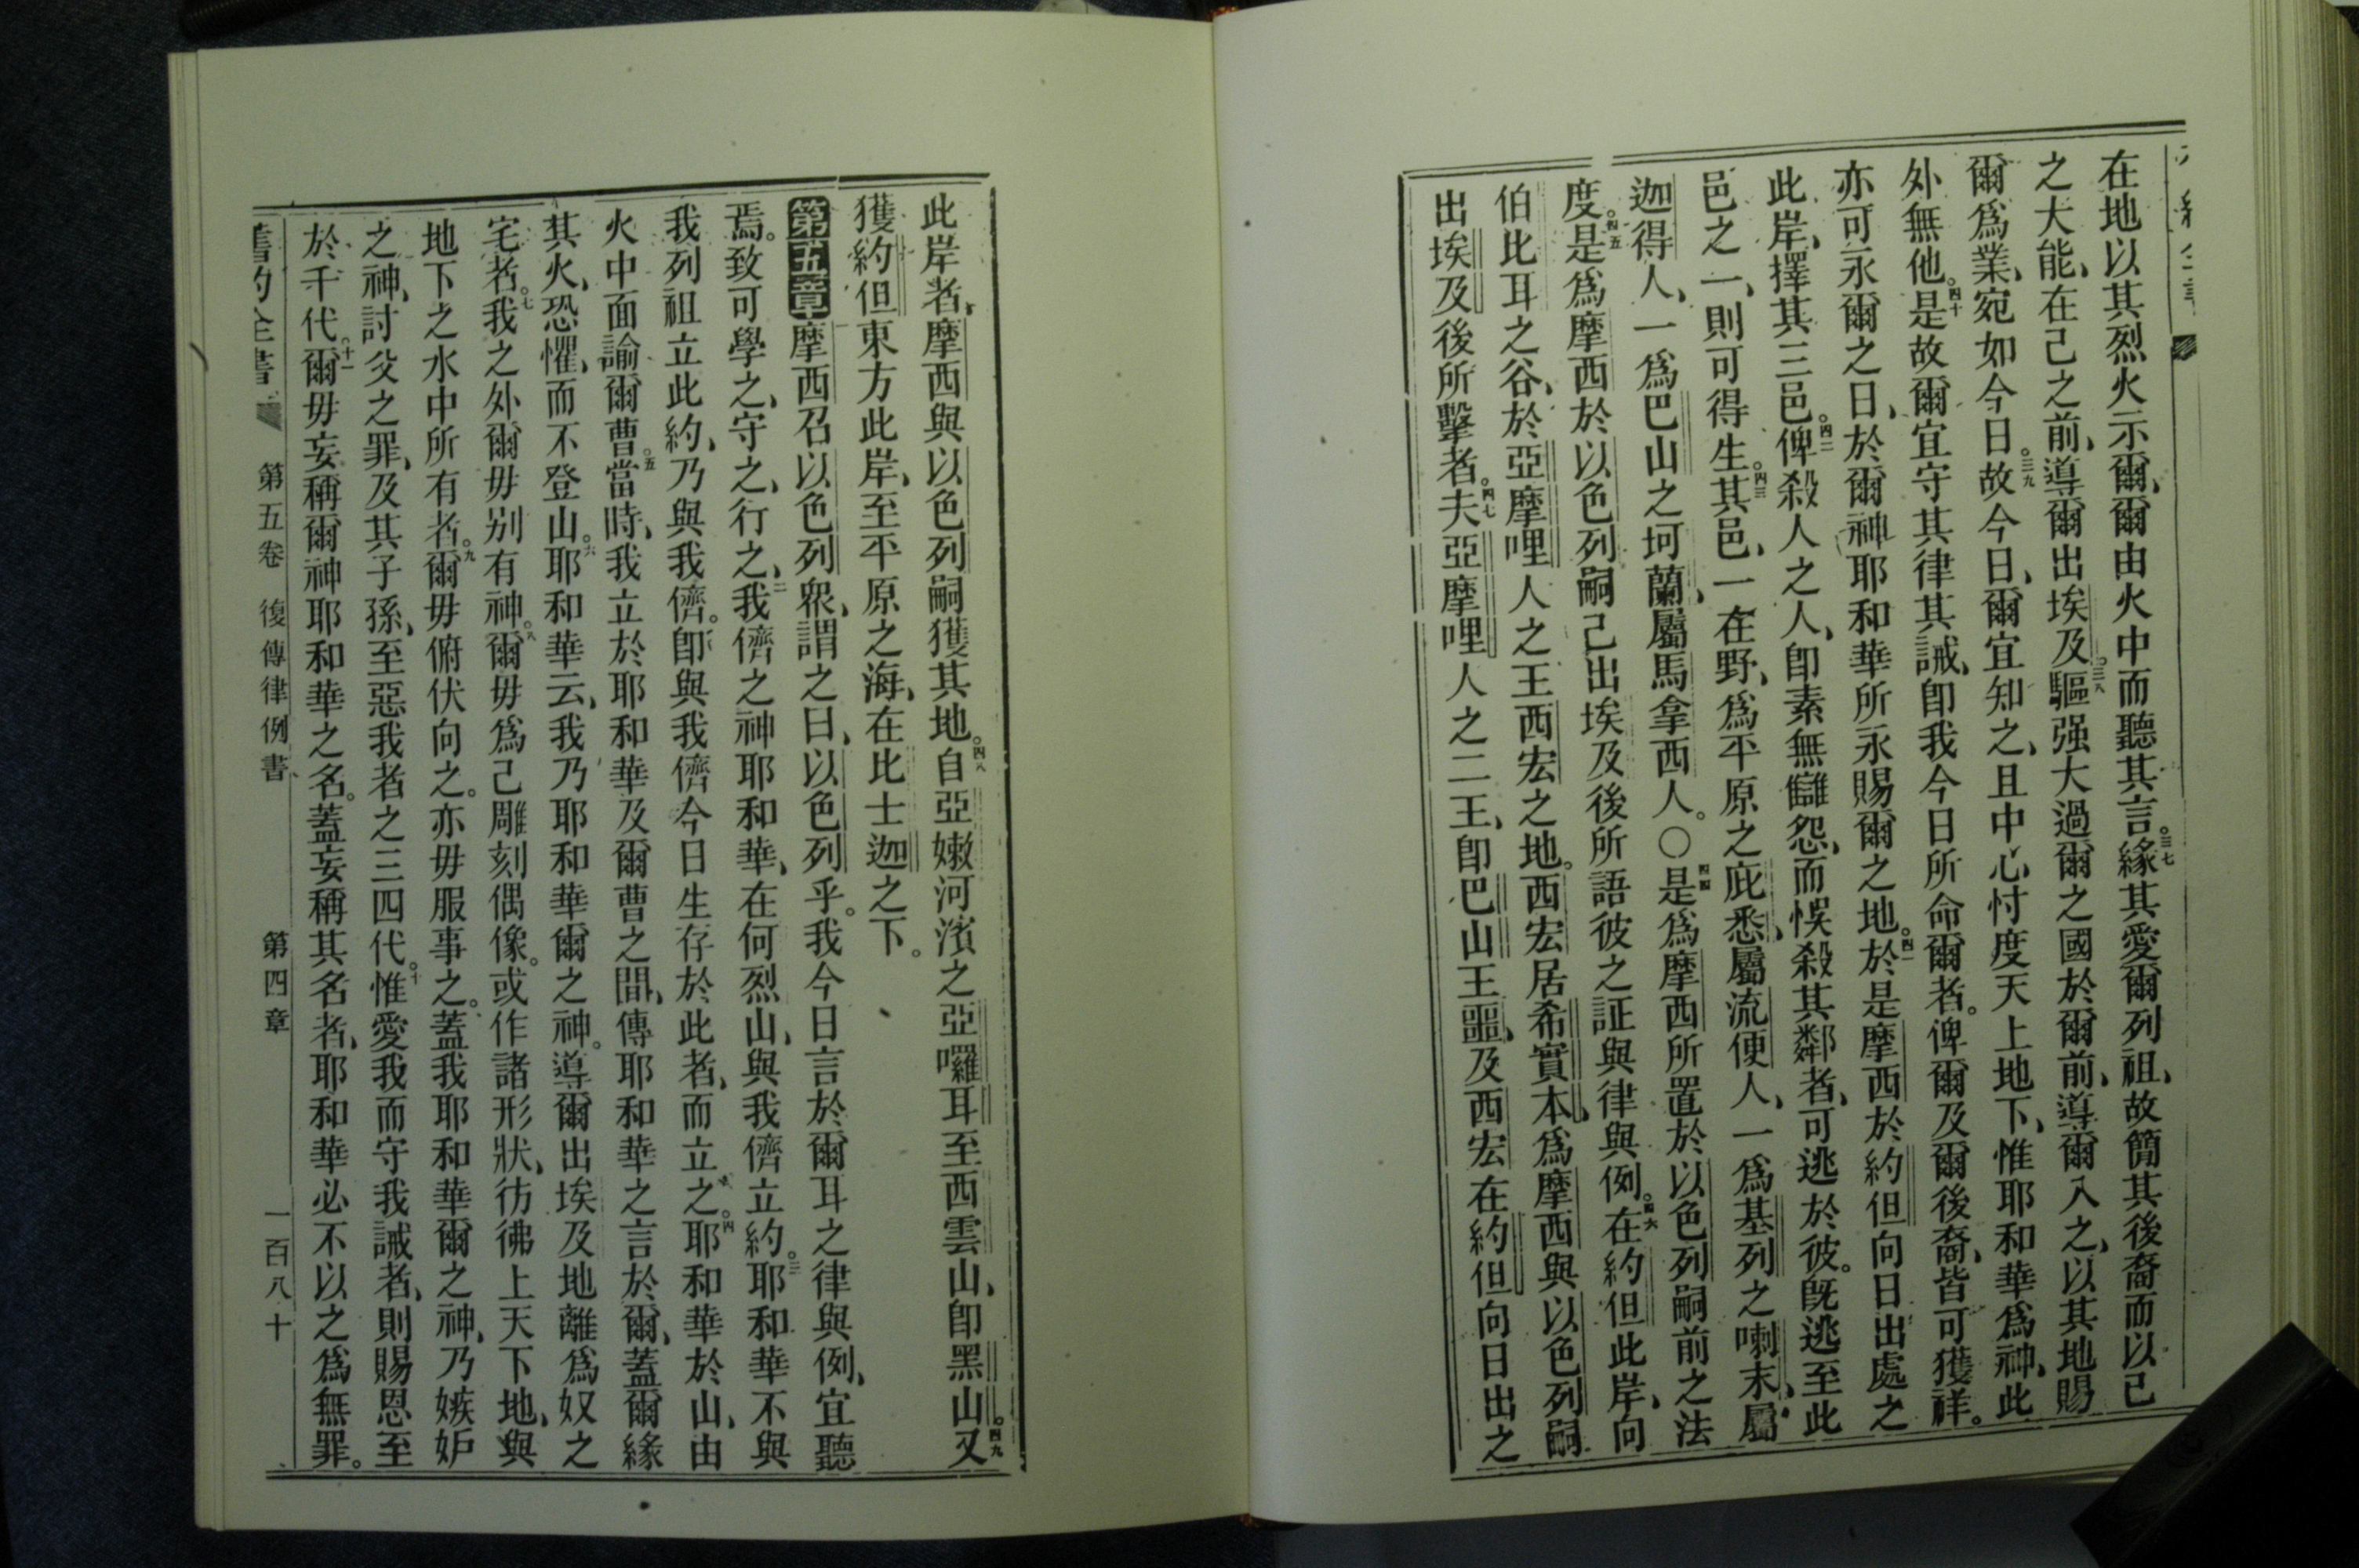 在地以其烈火示爾、爾由火中而聽其言。三七緣其愛爾列祖、故簡其後裔而以己
之大能、在己之前、導爾出埃及。三八驅强大過爾之國於爾前、導爾入之、以其地賜
爾爲業、宛如今日。三九故今日、爾宜知之、且中心忖度天上地下、惟耶和華爲神、此
外無他。四十是故爾宜守其律其誡、卽我今日所命爾者。俾爾及爾後裔、皆可獲祥。
亦可永爾之日、於爾神耶和華所永賜爾之地。四一於是摩西於約但向日出處之
此岸、擇其三邑。四二俾殺人之人、卽素無讎怨、而悞殺其鄰者、可逃於彼。旣逃至此
邑之一、則可得生。四三其邑、一在野、爲平原之庇悉、屬流便人、一爲基列之喇末、屬
迦得人、一爲巴山之坷蘭、屬馬拿西人。○四四是爲摩西所置於以色列嗣前之法
度。四五是爲摩西於以色列嗣己出埃及後所語彼之証與律與例。四六在約但此岸、向
伯比耳之谷、於亞摩哩人之王西宏之地。西宏居希實本、爲摩西與以色列嗣
出埃及後所擊者。四七夫亞摩哩人之二王、卽巴山王噩、及西宏在約但向日出之
此岸者、摩西與以色列嗣獲其地。四八自亞嫩河濱之亞囉耳至西雲山、卽黑山。四九又
獲約但東方此岸、至平原之海、在比士迦之下。
第五章摩西召以色列衆、謂之曰、以色列乎。我今日言於爾耳之律與例、宜聽
焉。致可學之、守之、行之、二我儕之神耶和華、在何烈山、與我儕立約。三耶和華不與
我列祖立此約、乃與我儕。卽與我儕今日生存於此者、而立之。四耶和華於山、由
火中面諭爾曹。五當時、我立於耶和華及爾曹之間、傳耶和華之言於爾、蓋爾緣
其火、恐懼、而不登山。六耶和華云、我乃耶和華爾之神。導爾出埃及地離爲奴之
宅者。七我之外爾毋别有神。八爾毋爲己雕刻偶像。或作諸形狀、彷彿上天下地、與
地下之水中所有者。九爾毋俯伏向之。亦毋服事之。蓋我耶和華爾之神、乃嫉妒
之神、討父之罪、及其子孫、至惡我者之三四代。十惟愛我而守我誡者、則賜恩至
於千代。十一爾毋妄稱爾神耶和華之名。蓋妄稱其名者、耶和華必不以之爲無罪。
舊約全書 第五卷 復傳律例書 第四章 一百八十